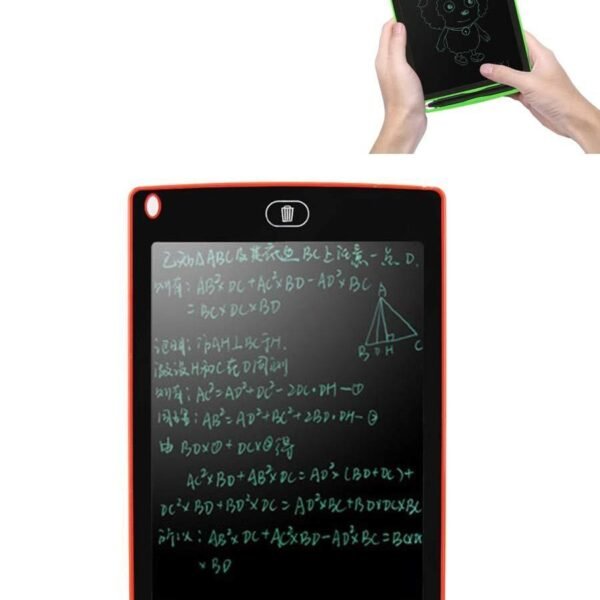 已知△ABC及其底边BC上任意一点D.
则有: AB²×DC+AC²×BD-AD²×BC
=BC×DC×BD
A
B D H C
证明: 作AH⊥BC于H.
假设H和C在D同侧
则有: AC²=AD²+DC²-2DC·DH-①
同理: AB²=AD²+BC²+2BD·DH-②
由 BD×①+DC×②得
AC²×BD+AB²×DC=AD²×(BD+DC)+
DC²×BD+BD²×DC=AD²×BC+BD×DC×BC
所以: AB²×DC+AC²×BD-AD²×BC=BC×DC
×BD